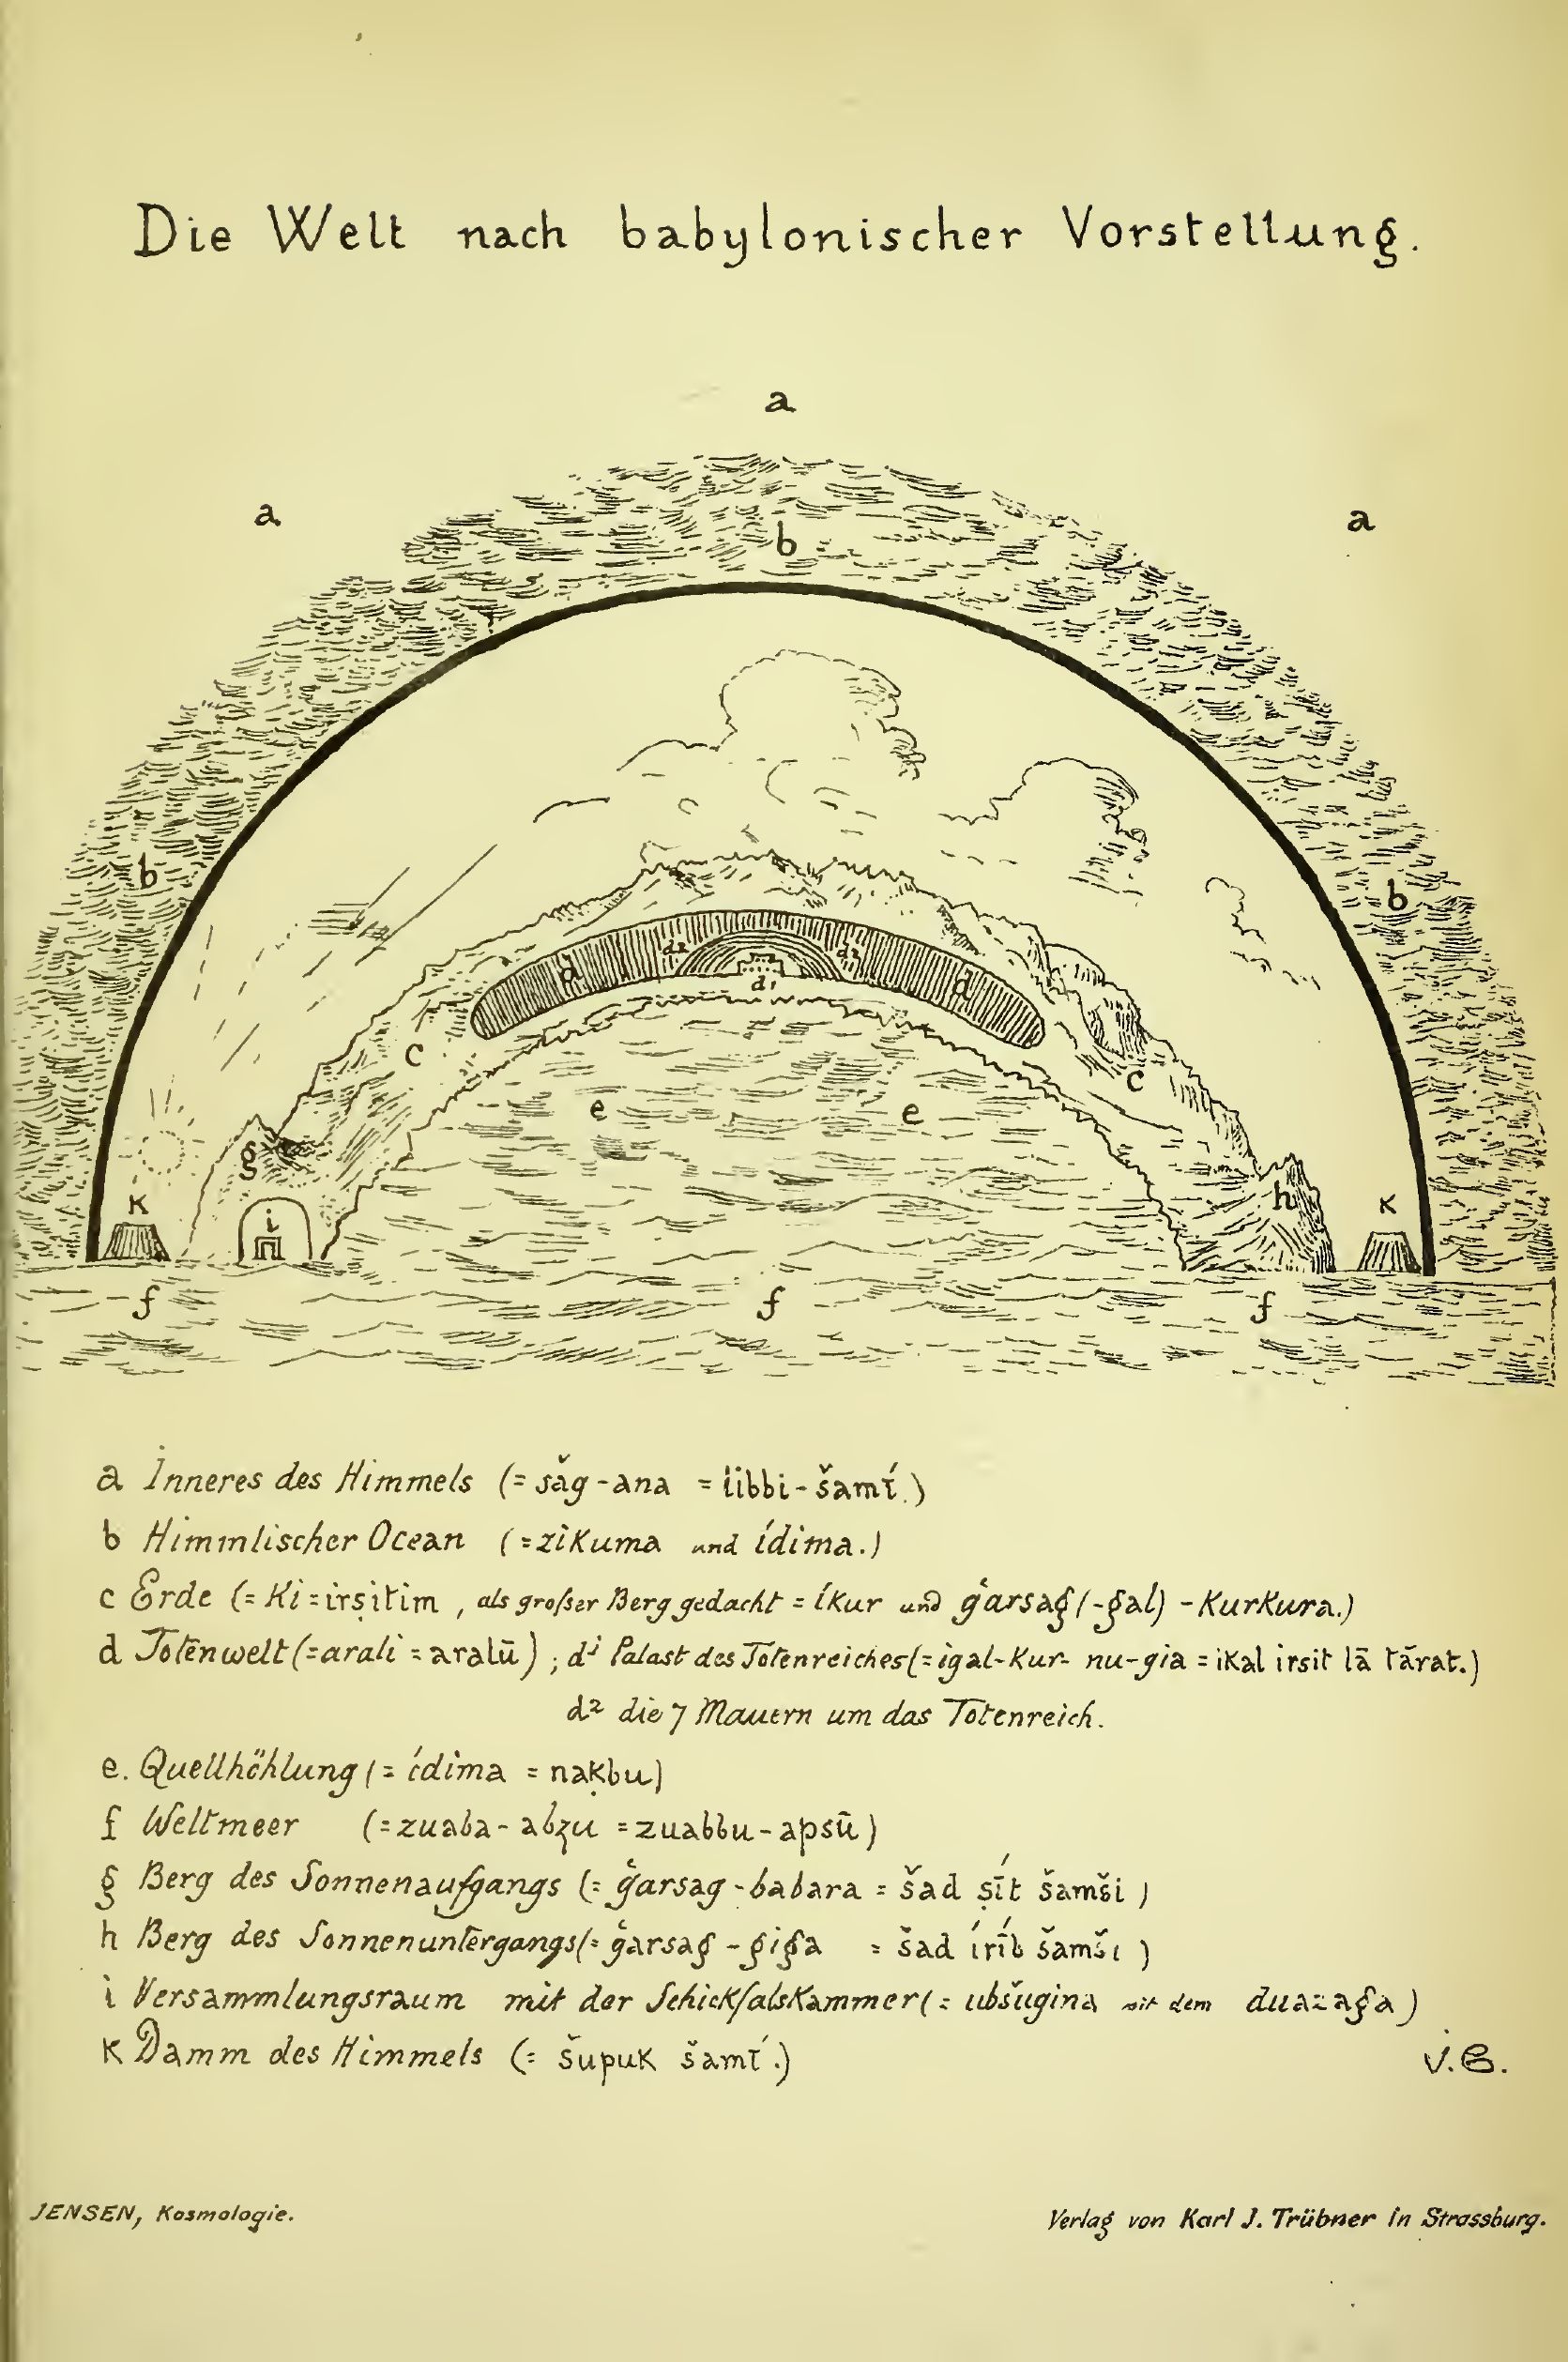 Die Welt nach babylonischer Vorstellung.
a
a
a
b
b
b
d2
d2
d
d
d1
c
c
e
e
g
h
K
K
i
f
f
f
a Inneres des Himmels (= šăg-ana = libbi-šamī́.)
b Himmlischer Ocean (=zikuma und ídima.)
c Erde (= Ki = irṣitim, als großer Berg gedacht = íkur und ġarsag(-gal) - Kurkura.)
d Totenwelt (=arali = aralū); d1 Palast des Totenreiches (= igal-Kur- nu-gia = ikal irsit lā tārat.)
d2 die 7 Mauern um das Totenreich.
e. Quellhöhlung (= ídima = naḳbu)
f Weltmeer (=zuaba- abzu =zuabbu-apsū)
g Berg des Sonnenaufgangs (= ġarsag-babara = šad ṣī́t šamši)
h Berg des Sonnenuntergangs (= ġarsag-giga = šad íríb šamši)
i Versammlungsraum mit der Schickſalskammer (= ubšugina mit dem duazaga)
K Damm des Himmels (= šupuk šamī́.)
V.B.
JENSEN, Kosmologie.
Verlag von Karl J. Trübner in Strassburg.